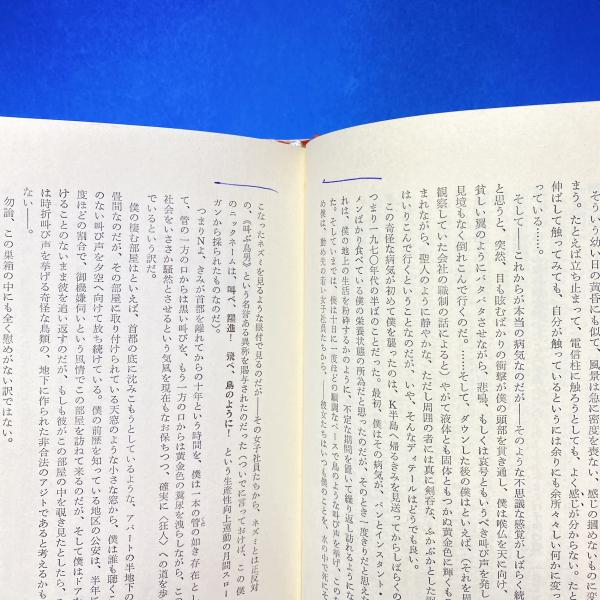 そういう幼い日の黄昏にも似て、風景は急に密度を喪い、感じの摑めないものに変
まう。たとえば立ち止まって、電信柱に触ろうとしても、よく感じが分からない。たと
伸ばして触ってみても、自分が触っているというには余りにも余所々々しい何かに変っ
っている……。
そして――これからが本当の病気なのだが――そのような不思議な感覚がしばらく続
と思うと、突然、目も眩むばかりの衝撃が僕の頭部を貫き通し、僕は喉仏を天に向け、
貧しい翼のようにバタバタさせながら、悲鳴、もしくは哀号ともいうべき叫び声を発し
見境もなく倒れこんで行くのだ。……そして、ダウンした後の僕はといえば、（それを
観察していた会社の職制の話によると）やがて液体とも固体ともつかぬ黄金色に輝くも
まれながら、聖人のように静やかな、ただし周囲の者には真に剣吞な、ふかぶかとした
はいりこんで行くということなのだが、いや、そんなディテールはどうでも良い。
この奇怪な病気が初めて僕を襲ったのは、K半島へ帰るきみを見送ってからしばらくの
つまり一九七〇年代の半ばのことだった。最初、僕はその病気が、パンとインスタント・
メンばかり食べている僕の栄養状態の所為だと思ったのだが、そのとき一度きりだと思え
れは、僕の地上の生活を粉砕するかのように、不定な期間を置いて繰り返し訪れるようにな
た。そしていまでは、僕は十日に一度ほどの順調なペースで鳥のような叫び声を挙げ、この
め僕は、勤め先の若い女子社員たちから、――彼女たちはいつも僕のことを、水の中で死にそ
こなったネズミを見るような眼付で見るのだが――その女子社員たちから、ネズミとは正反対
の、《叫ぶ鳥男》という名誉ある異称を賜与されたのだった（ついでに言っておけば、この僕
のニックネームは、叫べ、躍進！　飛べ、鳥のように！　という生産性向上運動の月間スロー
ガンから採られたものなのだ）。
つまりNよ、きみが首都を離れてからの十年という時間を、僕は一本の管の如き存在とし
て、管の一方の口からは黒い叫びを、もう一方の口からは黄金色の糞尿を洩らしながら、こ
社会をいささか騒然とさせるという気風を現在もなお保ちつつ、確実に〈狂人〉への道を歩
でいるという訳だ。
僕の棲む部屋はといえば、首都の底に沈みこもうとしているような、アパートの半地下の
畳間なのだが、その部屋に取り付けられている天窓のような小さな窓から、僕は誰も聴く
のない叫び声を夕空へ向けて放ち続けている。僕の前歴を知っている地区の公安は、半年
度ほどの割合で、御機嫌伺いという風情でこの部屋を訪ねて来るのだが、そして僕はドア
けることのないまま彼を追い返すのだが、もしも彼がこの部屋の中を覗き見たとしたら、
は時折叫び声を挙げる奇怪な鳥類の、地下に作られた非合法のアジトであると考えるかも
ない――。
勿論、この巣箱の中にも全く慰めがない訳ではない。